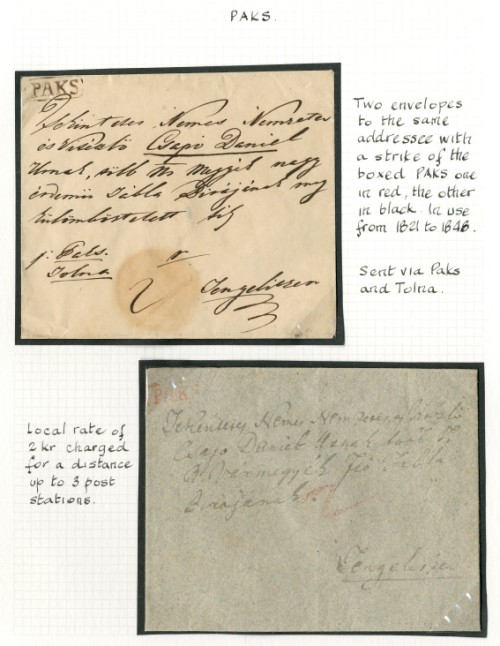 PAKS.
PAKS
Tekintetes Nemes Nemzetes
és Vitézlő Csapo Daniel
Urnak, több Ns Megyék nagy
érdemü Tábla Birájának
p: Paks.
Tolna
2
Tengelitzen
Two envelopes
to the same
addressee with
a strike of the
boxed PAKS one
in red, the other
in black. In use
from 1821 to 1846.
Sent via Paks
and Tolna.
Local rate of
2 kr charged
for a distance
up to 3 post
stations.
PAKS
Tekintetes Nemes Nemzetes
Csapo Daniel Urnak
Tabla
Birájának
Tengelitzen